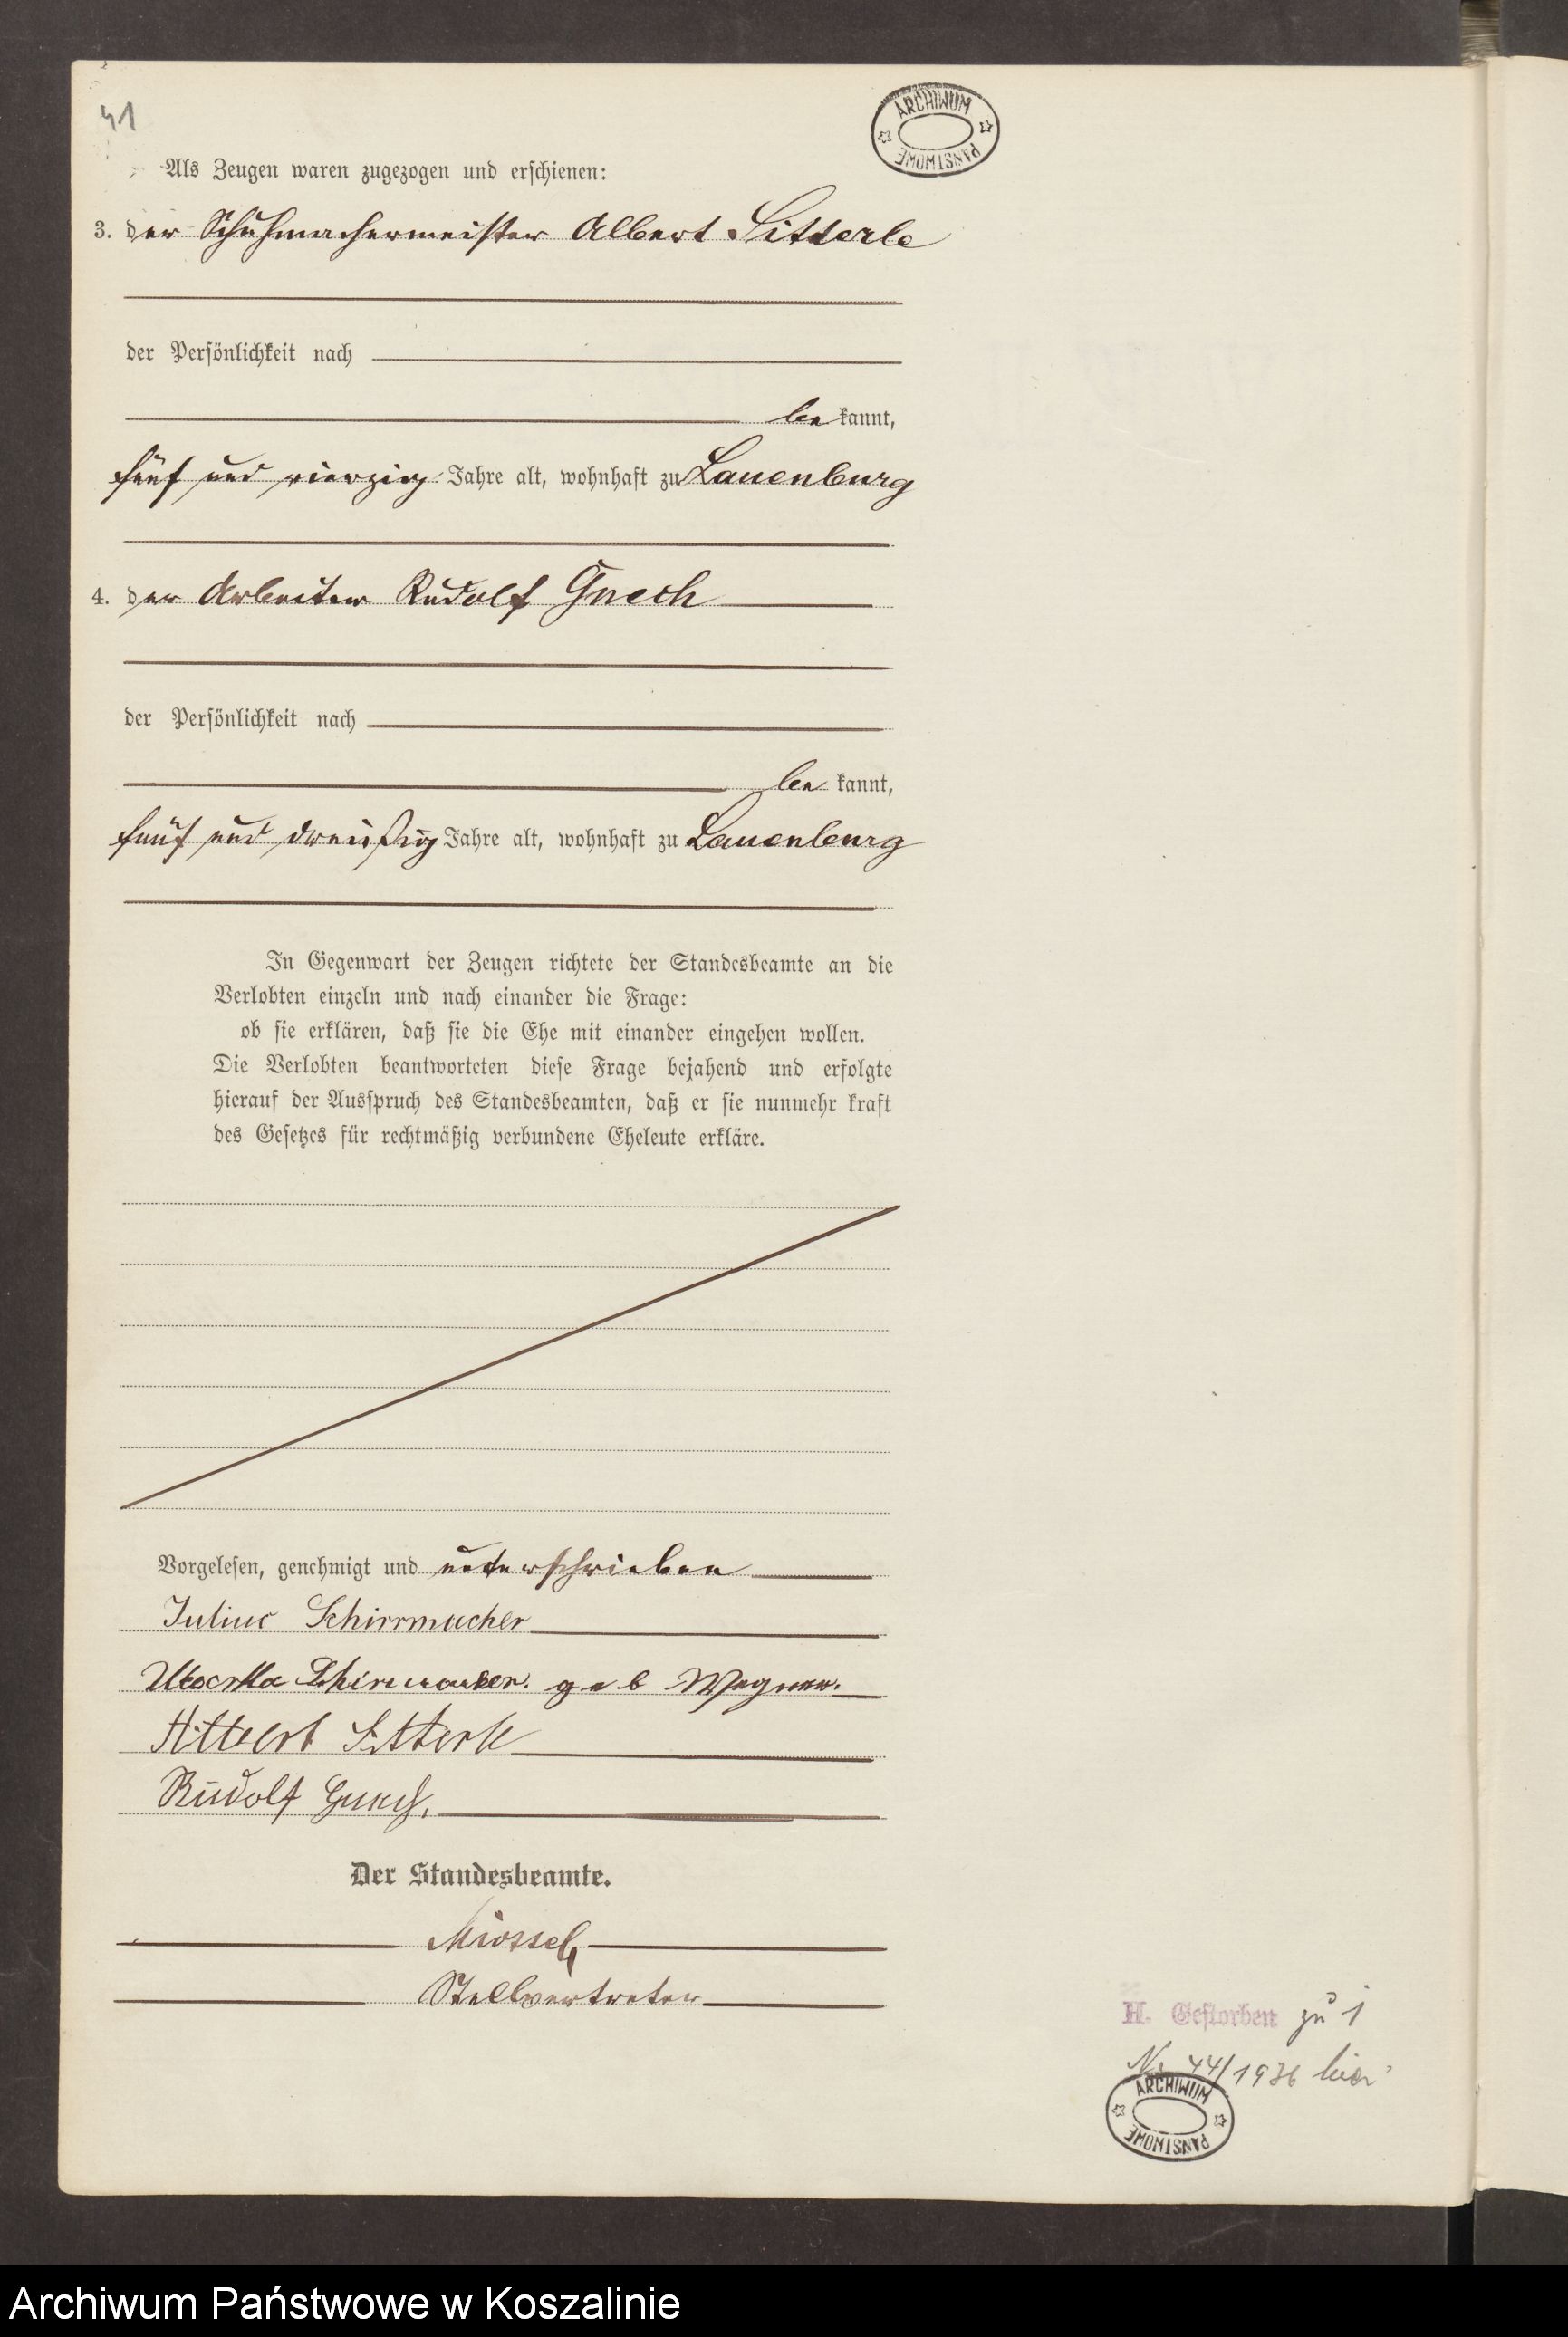 41
ARCHIWUM PAŃSTWOWE
Als Zeugen waren zugezogen und erschienen:
3. der Schuhmachermeister Albert Sitterle
der Persönlichkeit nach
be kannt,
fünf und vierzig Jahre alt, wohnhaft zu Lauenburg
4. der Arbeiter Rudolf Gnech
der Persönlichkeit nach
be kannt,
fünf und dreißig Jahre alt, wohnhaft zu Lauenburg
In Gegenwart der Zeugen richtete der Standesbeamte an die
Verlobten einzeln und nach einander die Frage:
ob sie erklären, daß sie die Ehe mit einander eingehen wollen.
Die Verlobten beantworteten diese Frage bejahend und erfolgte
hierauf der Ausspruch des Standesbeamten, daß er sie nunmehr kraft
des Gesetzes für rechtmäßig verbundene Eheleute erkläre.
Vorgelesen, genehmigt und unterschrieben
Julius Schirrmacher
geb Wegner.
Sitterle
Rudolf Gnech.
Der Standesbeamte.
Stellvertreter
H. Gestorben zu 1
Nr. 44/1936 hier
ARCHIWUM PAŃSTWOWE
Archiwum Państwowe w Koszalinie